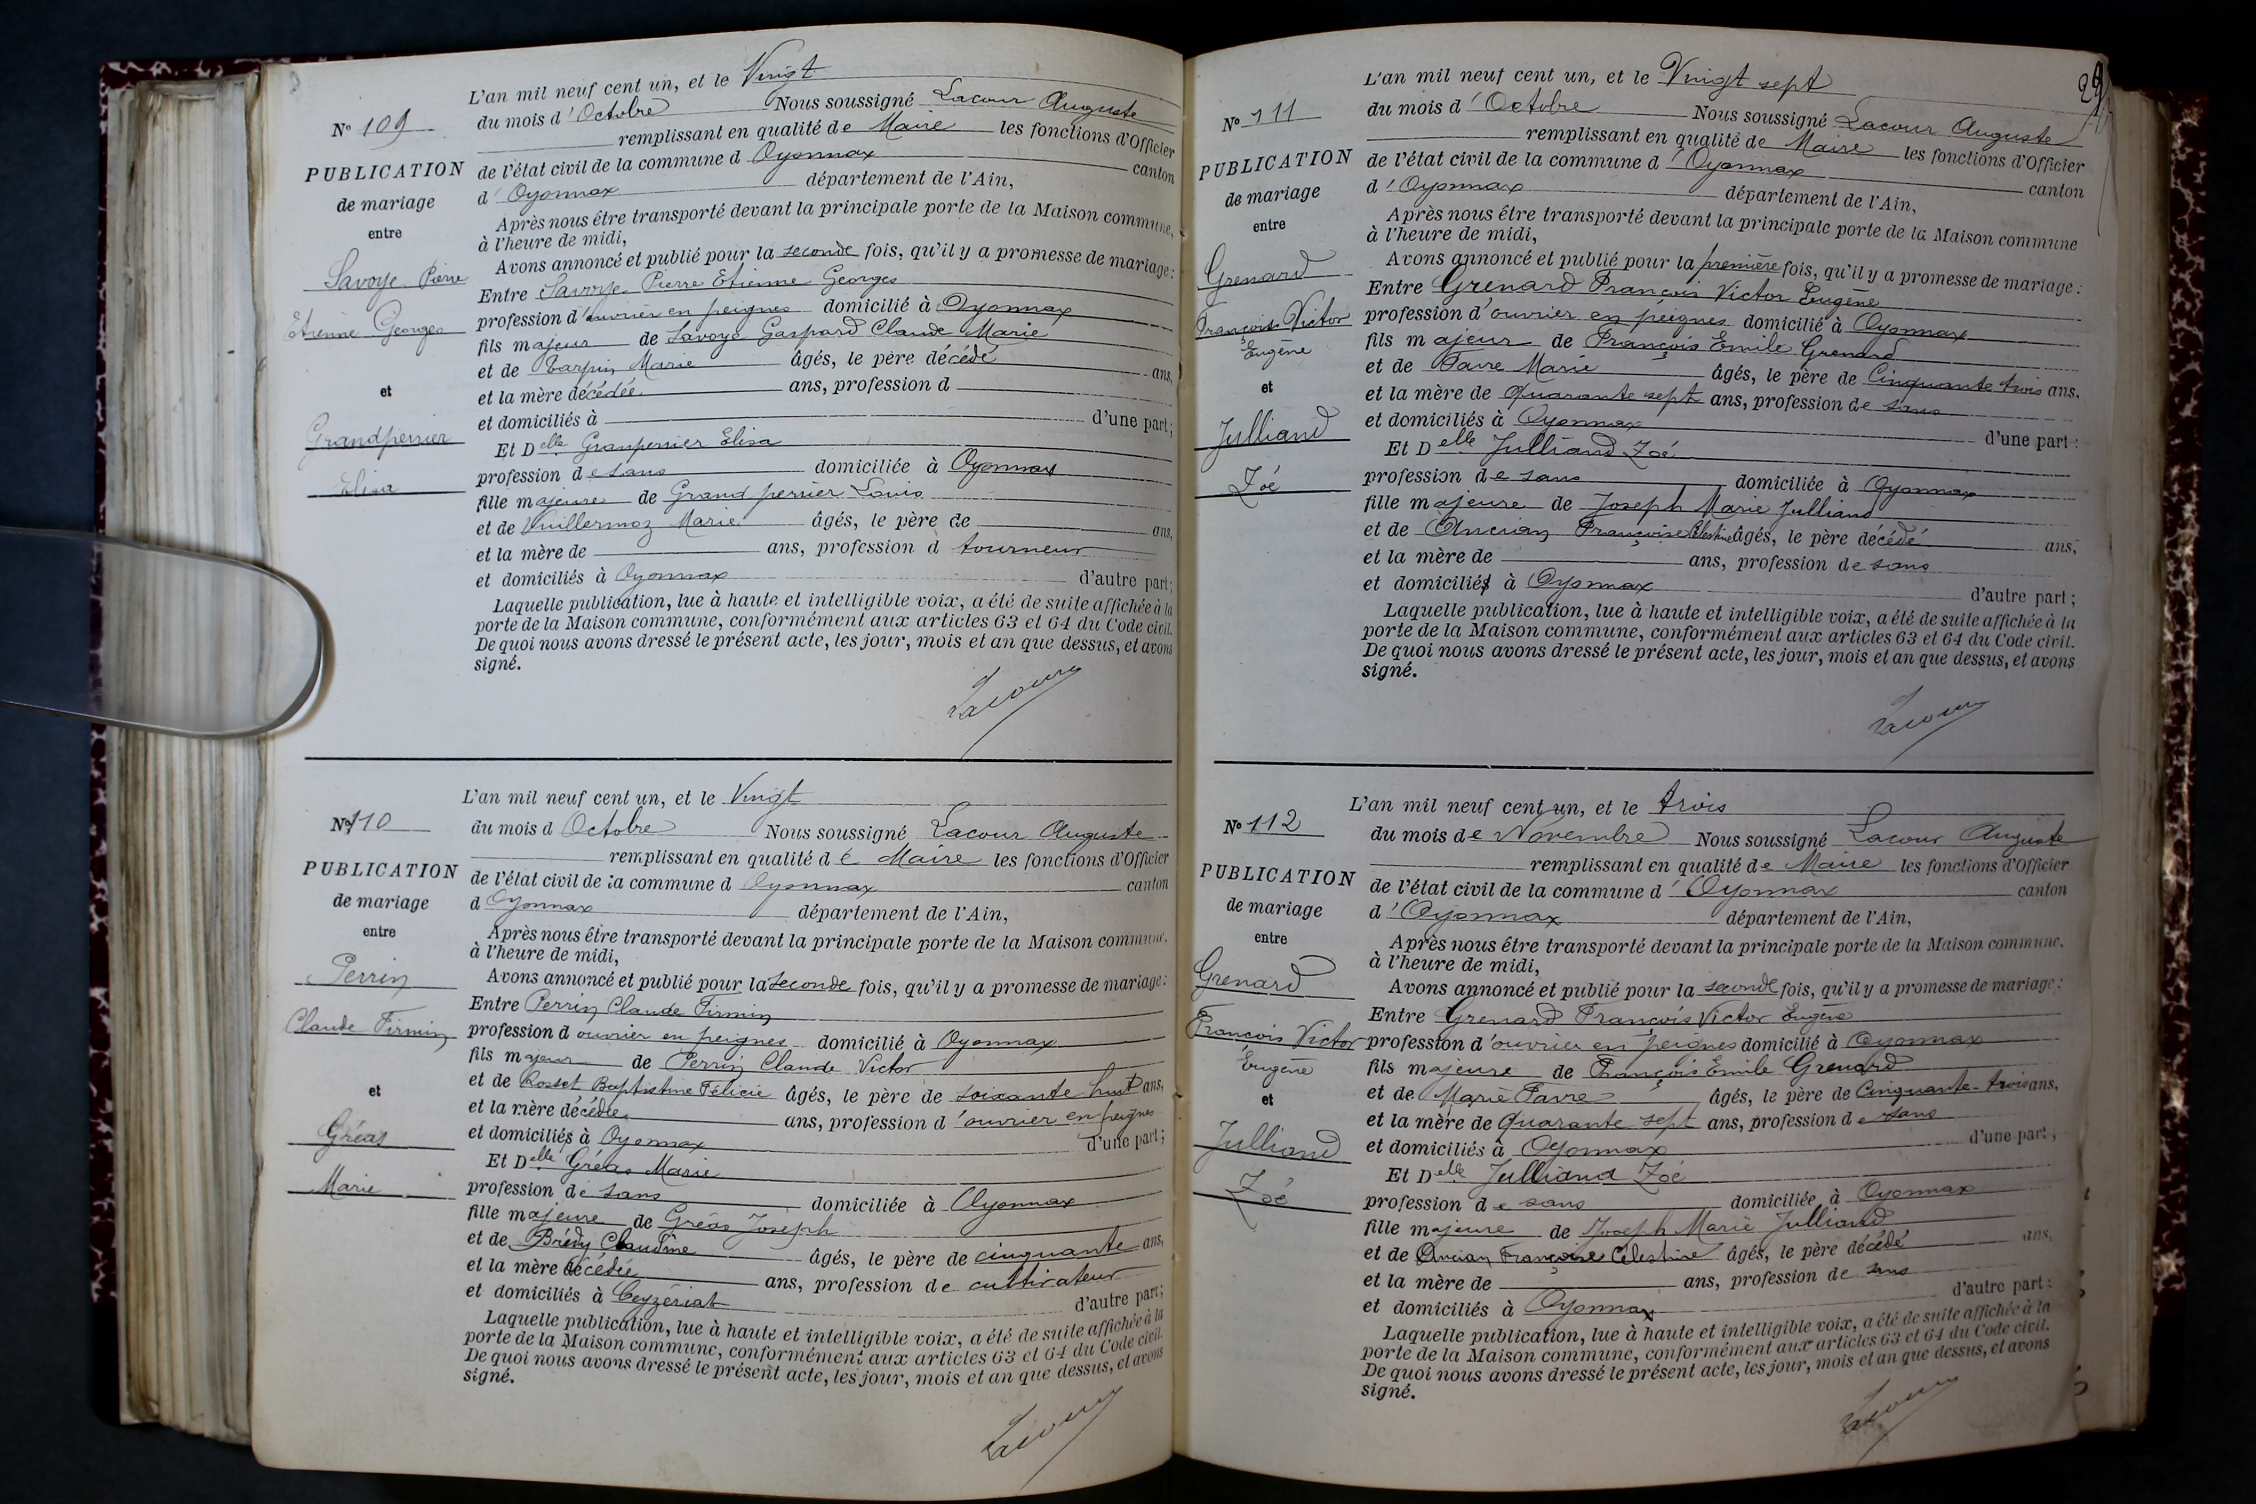 N° 109
PUBLICATION
de mariage
entre
Savoye Pierre
Etienne Georges
et
Grandperrier
Elisa
L'an mil neuf cent un, et le Vingt
du mois d'Octobre Nous soussigné Lacour Auguste
remplissant en qualité de Maire les fonctions d'Officier
de l'état civil de la commune d Oyonnax canton
d'Oyonnax département de l'Ain,
Après nous être transporté devant la principale porte de la Maison commune,
à l'heure de midi,
Avons annoncé et publié pour la seconde fois, qu'il y a promesse de mariage:
Entre Savoye Pierre Etienne Georges
profession d'ouvrier en peignes domicilié à Oyonnax
fils majeur de Savoye Gaspard Claude Marie
et de Tarpin Marie âgés, le père décédé ans,
et la mère décédée ans, profession d
et domiciliés à d'une part;
Et Delle Granperrier Elisa
profession de sans domiciliée à Oyonnax
fille majeure de Grand perrier Louis
et de Vuillermoz Marie âgés, le père de ans,
et la mère de ans, profession d tourneur
et domiciliés à Oyonnax d'autre part;
Laquelle publication, lue à haute et intelligible voix, a été de suite affichée à la
porte de la Maison commune, conformément aux articles 63 et 64 du Code civil.
De quoi nous avons dressé le présent acte, les jour, mois et an que dessus, et avons
signé.
Lacour
N° 110
PUBLICATION
de mariage
entre
Perrin
Claude Firmin
et
Gréas
Marie
L'an mil neuf cent un, et le Vingt
du mois d Octobre Nous soussigné Lacour Auguste
remplissant en qualité de Maire les fonctions d'Officier
de l'état civil de la commune d Oyonnax canton
d Oyonnax département de l'Ain,
Après nous être transporté devant la principale porte de la Maison commune.
à l'heure de midi,
Avons annoncé et publié pour la seconde fois, qu'il y a promesse de mariage:
Entre Perrin Claude Firmin
profession d ouvrier en peignes domicilié à Oyonnax
fils majeur de Perrin Claude Victor
et de Rosset Baptistine Félicie âgés, le père de soixante huit ans,
et la mère décédée ans, profession d'ouvrier en peignes
et domiciliés à Oyonnax d'une part;
Et Delle Gréas Marie
profession de sans domiciliée à Oyonnax
fille majeure de Gréas Joseph
et de Brédy Claudine âgés, le père de cinquante ans,
et la mère décédée ans, profession de cultivateur
et domiciliés à Ceyzériat d'autre part;
Laquelle publication, lue à haute et intelligible voix, a été de suite affichée à la
porte de la Maison commune, conformément aux articles 63 et 64 du Code civil.
De quoi nous avons dressé le présent acte, les jour, mois et an que dessus, et avons
signé.
Lacour
29
N° 111
PUBLICATION
de mariage
entre
Grenard
François Victor
Eugène
et
Julliand
Zoé
L'an mil neuf cent un, et le Vingt sept
du mois d'Octobre Nous soussigné Lacour Auguste
remplissant en qualité de Maire les fonctions d'Officier
de l'état civil de la commune d'Oyonnax canton
d'Oyonnax département de l'Ain,
Après nous être transporté devant la principale porte de la Maison commune
à l'heure de midi,
Avons annoncé et publié pour la première fois, qu'il y a promesse de mariage:
Entre Grenard François Victor Eugène
profession d'ouvrier en peignes domicilié à Oyonnax
fils majeur de François Emile Grenard
et de Favre Marie âgés, le père de Cinquante trois ans,
et la mère de Quarante sept ans, profession de sans
et domiciliés à Oyonnax d'une part:
Et Delle Julliand Zoé
profession de sans domiciliée à Oyonnax
fille majeure de Joseph Marie Julliand
et de Ancian Françoise Célestine âgés, le père décédé ans,
et la mère de ans, profession de sans
et domiciliés à Oyonnax d'autre part;
Laquelle publication, lue à haute et intelligible voix, a été de suite affichée à la
porte de la Maison commune, conformément aux articles 63 et 64 du Code civil.
De quoi nous avons dressé le présent acte, les jour, mois et an que dessus, et avons
signé.
Lacour
N° 112
PUBLICATION
de mariage
entre
Grenard
François Victor
Eugène
et
Julliand
Zoé
L'an mil neuf cent un, et le trois
du mois de Novembre Nous soussigné Lacour Auguste
remplissant en qualité de Maire les fonctions d'Officier
de l'état civil de la commune d'Oyonnax canton
d'Oyonnax département de l'Ain,
Après nous être transporté devant la principale porte de la Maison commune.
à l'heure de midi,
Avons annoncé et publié pour la seconde fois, qu'il y a promesse de mariage:
Entre Grenard François Victor Eugène
profession d'ouvrier en peignes domicilié à Oyonnax
fils majeure de François Emile Grenard
et de Marie Favre âgés, le père de Cinquante-trois ans,
et la mère de Quarante sept ans, profession de sans
et domiciliés à Oyonnax d'une part;
Et Delle Julliand Zoé
profession de sans domiciliée à Oyonnax
fille majeure de Joseph Marie Julliand
et de Ancian Françoise Célestine âgés, le père décédé ans,
et la mère de ans, profession de sans
et domiciliés à Oyonnax d'autre part:
Laquelle publication, lue à haute et intelligible voix, a été de suite affichée à la
porte de la Maison commune, conformément aux articles 63 et 64 du Code civil.
De quoi nous avons dressé le présent acte, les jour, mois et an que dessus, et avons
signé.
Lacour